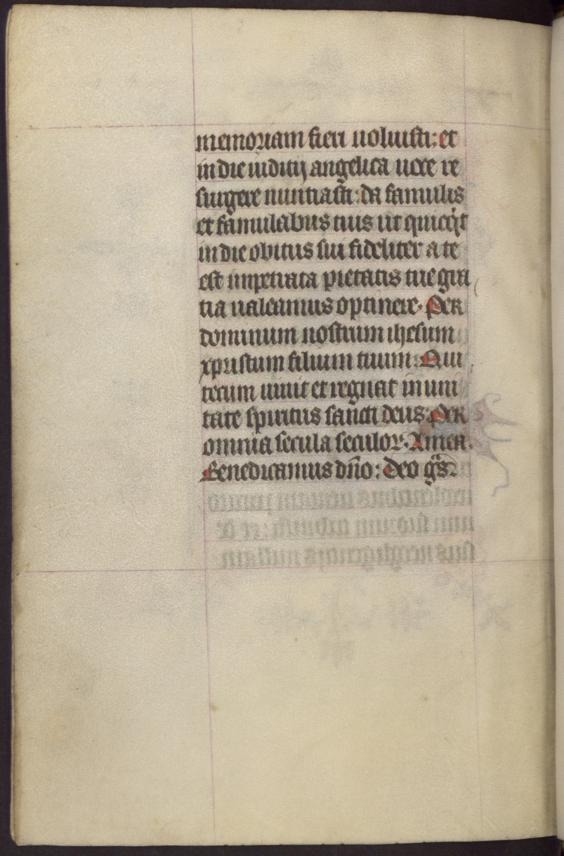 memoriam fieri uoluisti: et
in die iuditij angelica uoce re
surgere nuntiasti: da famulis
et famulabus tuis ut quicq̃t
in die obitus sui fideliter a te
est impetrata pietatis tue gra
tia ualeamus optinere. Per
dominum nostrum ihesum
xpristum filium tuum. Qui
tecum uiuit et regnat in uni
tate spiritus sancti deus. Per
omnia secula seculor. Amen.
Benedicamus dño: Deo gr̃s.